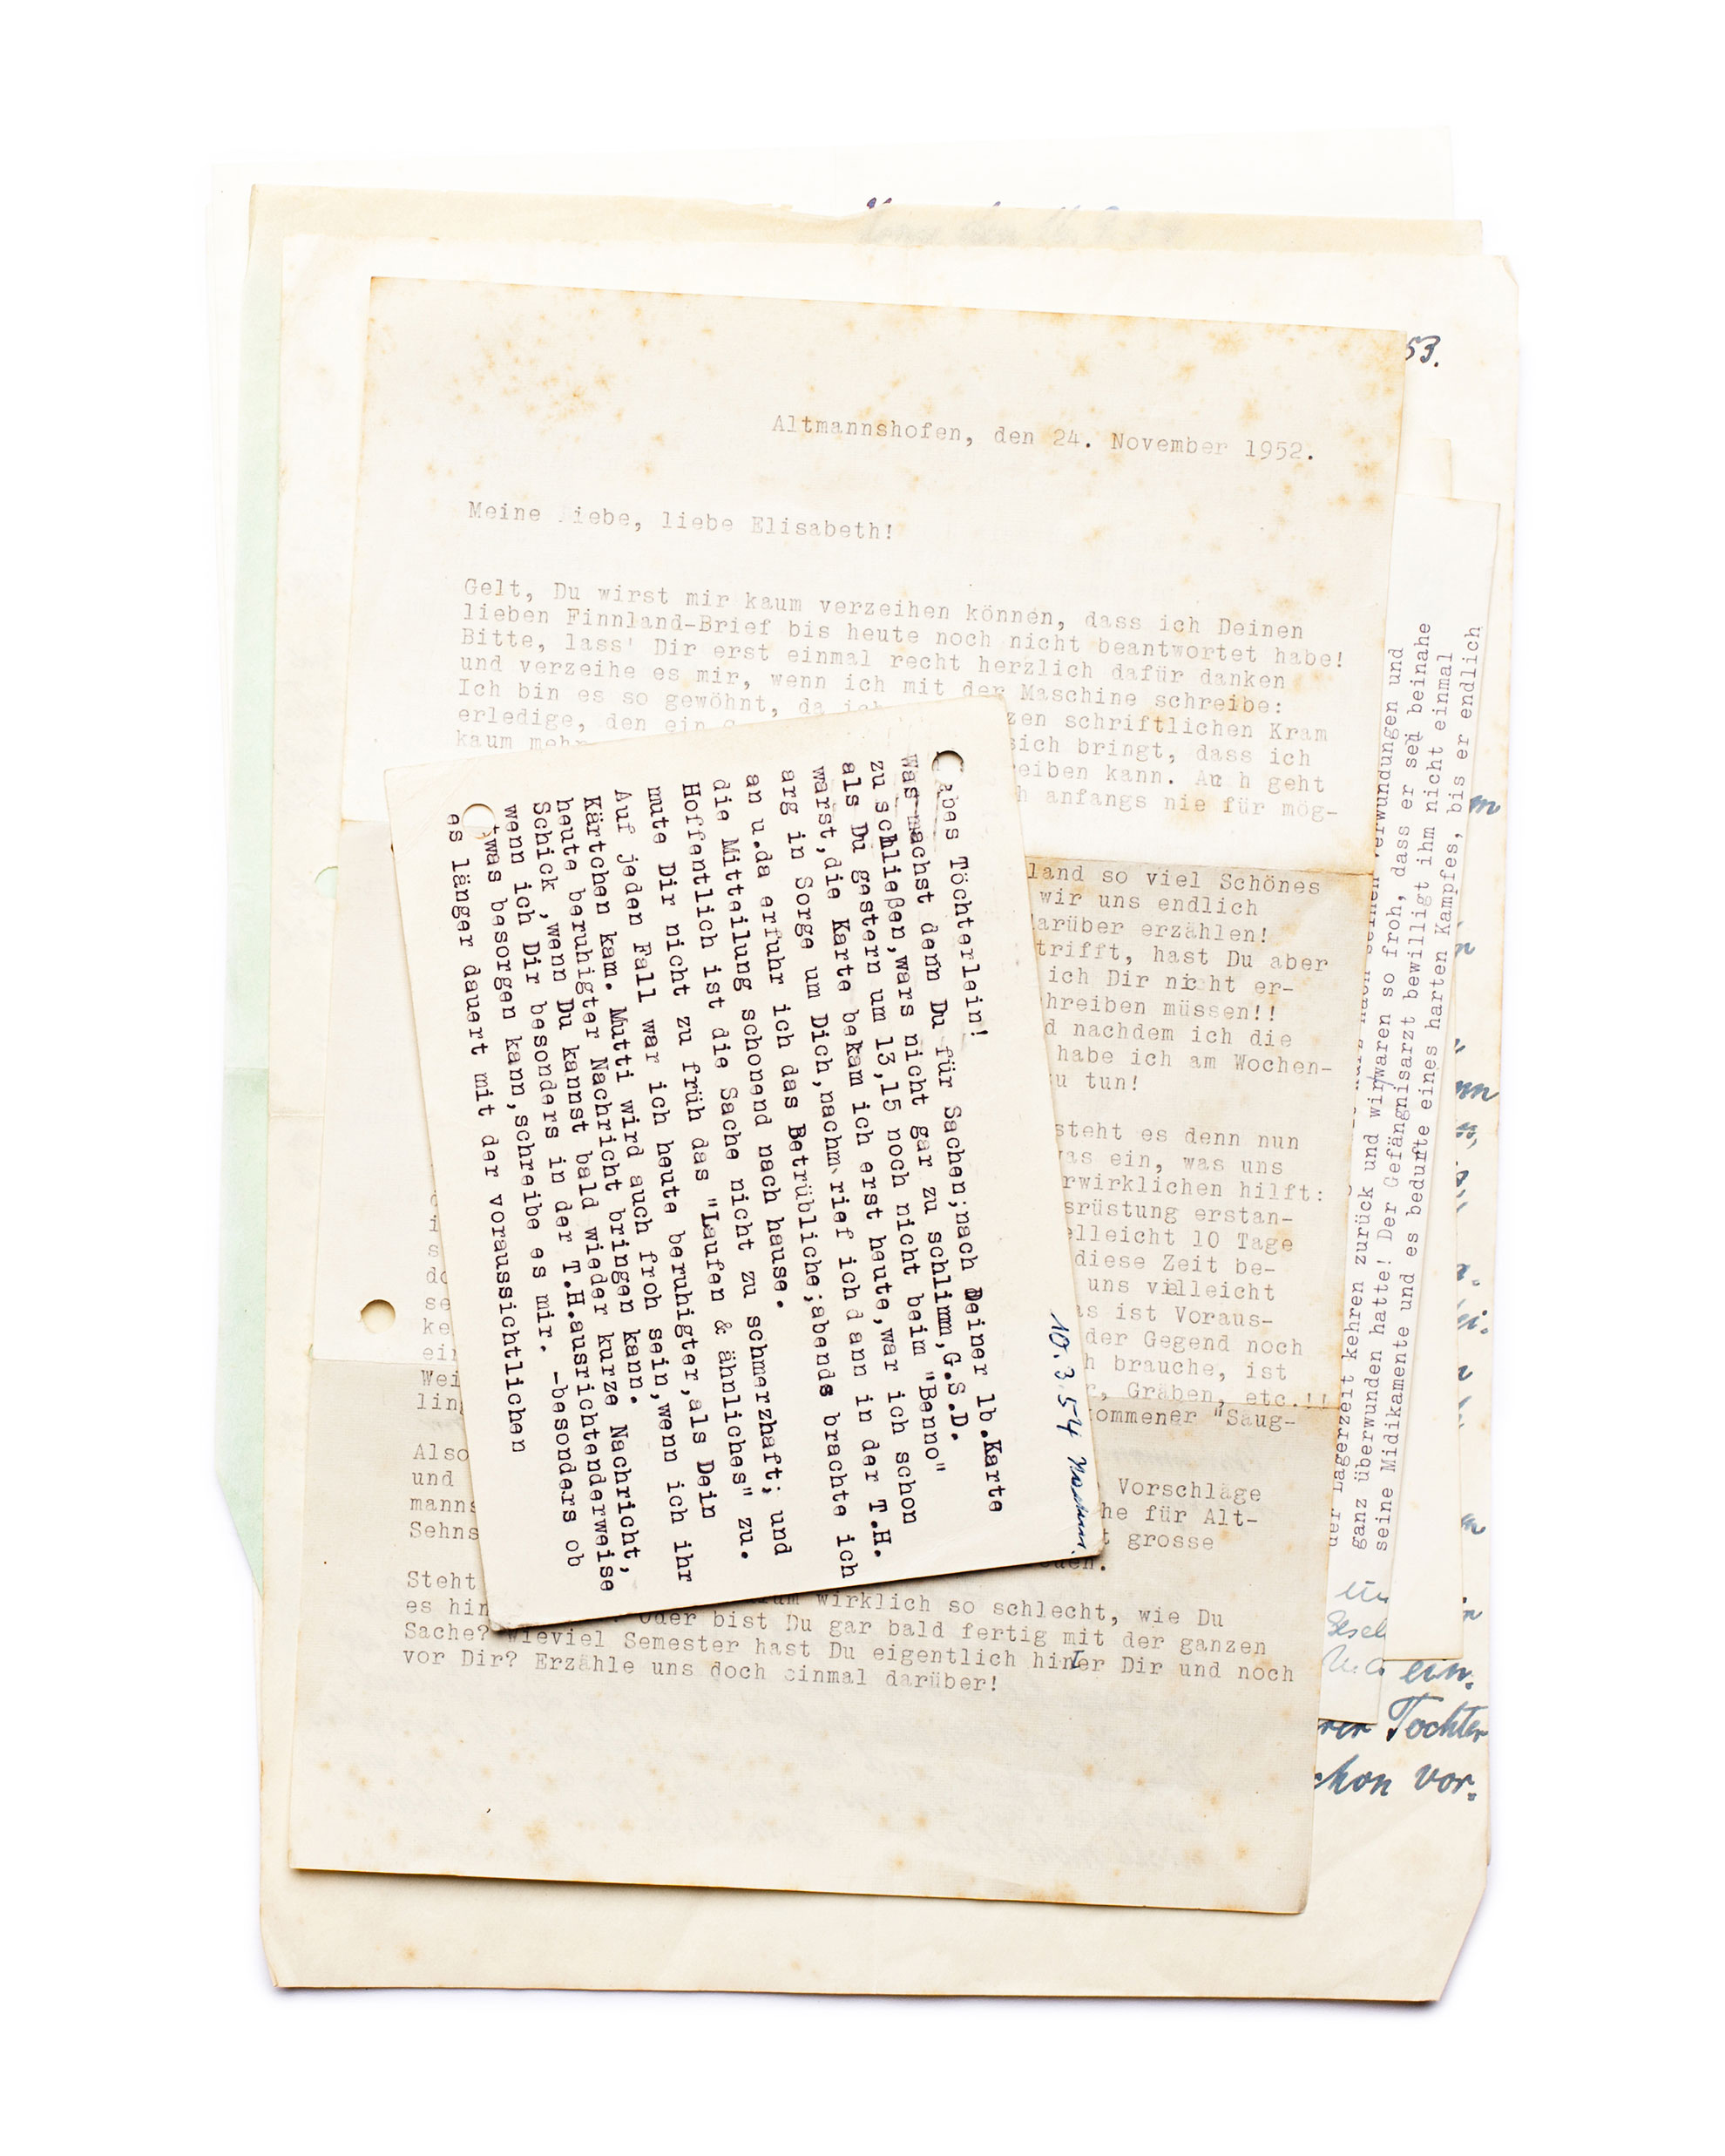 53.
Altmannshofen, den 24. November 1952.
Meine iebe, liebe Elisabeth!
Gelt, Du wirst mir kaum verzeihen können, dass ich Deinen
lieben Finnland-Brief bis heute noch nicht beantwortet habe!
Bitte, lass' Dir erst einmal recht herzlich dafür danken
und verzeihe es mir, wenn ich mit der Maschine schreibe:
Ich bin es so gewöhnt, da ich zen schriftlichen Kram
erledige, den ein sich bringt, dass ich
kaum mehr eiben kann. Auch geht
h anfangs nie für mög-
land so viel Schönes
wir uns endlich
arüber erzählen!
trifft, hast Du aber
ich Dir nicht er-
hreiben müssen!!
d nachdem ich die
habe ich am Wochen-
zu tun!
steht es denn nun
was ein, was uns
rwirklichen hilft:
srüstung erstan-
elleicht 10 Tage
diese Zeit be-
uns villeicht
as ist Voraus-
der Gegend noch
h brauche, ist
r, Gräben, etc.!!
ommener "Säug-
do
se
ke
ein
Wei
ling
Also Vorschläge
und he für Alt-
manns t grosse
Sehns den.
Steht wirklich so schlecht, wie Du
es hin Oder bist Du gar bald fertig mit der ganzen
Sache? Wieviel Semester hast Du eigentlich hinTer Dir und noch
vor Dir? Erzähle uns doch einmal darüber!
10.3.54
bes Töchterlein!
was machst denn Du für Sachen;nach Deiner lb.Karte
zu schließen,wars nicht gar zu schlimm,G.S.D.
als Du gestern um 13,15 noch nicht beim "Benno"
warst,die Karte bekam ich erst heute,war ich schon
arg in Sorge um Dich,nachm.rief ich dann in der T.H.
an u.da erfuhr ich das Betrübliche;abends brachte ich
die Mitteilung schonend nach hause.
Hoffentlich ist die Sache nicht zu schmerzhaft; und
mute Dir nicht zu früh das "Laufen & ähnliches" zu.
Auf jeden Fall war ich heute beruhigter,als Dein
Kärtchen kam. Mutti wird auch froh sein,wenn ich ihr
heute beruhigter Nachricht bringen kann.
Schick ,wenn Du kannst bald wieder kurze Nachricht,
wenn ich Dir besonders in der T.H.ausrichtenderweise
twas besorgen kann,schreibe es mir. -besonders ob
es länger dauert mit der voraussichtlichen
der Lagerzeit kehren zurück und wir waren so froh, dass er seine Verwundungen und
ganz überwunden hatte! Der Gefängnisarzt bewilligt ihm nicht einmal
seine Midikamente und es bedurfte eines harten Kampfes, bis er endlich
beinahe
Gesel
ein.
rer Tochter
chon vor.